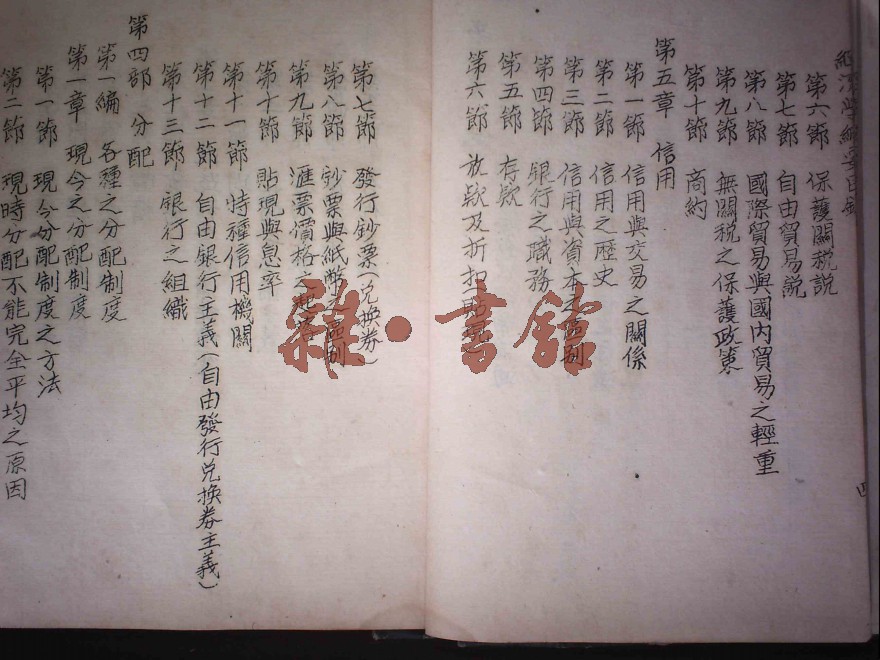 經濟學綱要目錄
第六節 保護關稅說
第七節 自由貿易說
第八節 國際貿易與國內貿易之輕重
第九節 無關稅之保護政策
第十節 商約
第五章 信用
第一節 信用與交易之關係
第二節 信用之歷史
第三節 信用與資本之區別
第四節 銀行之職務
第五節 存款
第六節 放款及折扣貼現
四
第七節 發行鈔票(兌換券)
第八節 鈔票與紙幣之區別
第九節 滙票價格之
第十節 貼現與息率
第十一節 特種信用機關
第十二節 自由銀行主義(自由發行兌換券主義)
第十三節 銀行之組織
第四部 分配
第一編 各種之分配制度
第一章 現今之分配制度
第一節 現今分配制度之方法
第二節 現時分配不能完全平均之原因
雜·書舘